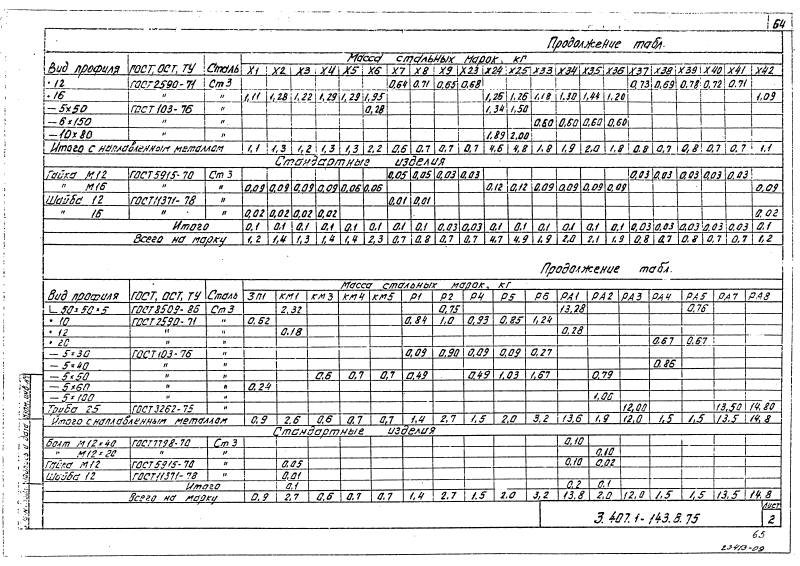 64
Продолжение табл.
Вид профиля ГОСТ, ОСТ, ТУ Сталь Масса стальных марок, кг
Х1 Х2 Х3 Х4 Х5 Х6 Х7 Х8 Х9 Х23 Х24 Х25 Х33 Х34 Х35 Х36 Х37 Х38 Х39 Х40 Х41 Х42
• 12 ГОСТ2590-71 Ст3 0,64 0,71 0,65 0,68 0,73 0,69 0,78 0,72 0,71
• 16 " " 1,11 1,28 1,22 1,29 1,29 1,95 1,26 1,26 1,18 1,30 1,44 1,20 1,09
— 5×50 ГОСТ 103-76 " 0,28 1,34 1,50
— 6×150 " " 0,60 0,60 0,60 0,60
— 10×80 " " 1,89 2,00
Итого с наплавленным металлом 1,1 1,3 1,2 1,3 1,3 2,2 0,6 0,7 0,7 0,7 4,6 4,8 1,8 1,9 2,0 1,8 0,8 0,7 0,8 0,7 0,7 1,1
Стандартные изделия
Гайка М12 ГОСТ5915-70 Ст3 0,05 0,05 0,03 0,03 0,03 0,03 0,03 0,03 0,03
" М16 " " 0,09 0,09 0,09 0,09 0,06 0,06 0,12 0,12 0,09 0,09 0,09 0,09 0,09
Шайба 12 ГОСТ11371-78 " 0,01 0,01
" 16 " " 0,02 0,02 0,02 0,02 0,02
Итого 0,1 0,1 0,1 0,1 0,1 0,1 0,1 0,1 0,03 0,03 0,1 0,1 0,1 0,1 0,1 0,1 0,03 0,03 0,03 0,03 0,03 0,1
Всего на марку 1,2 1,4 1,3 1,4 1,4 2,3 0,7 0,8 0,7 0,7 4,7 4,9 1,9 2,0 2,1 1,9 0,8 0,7 0,8 0,7 0,7 1,2
Продолжение табл.
Вид профиля ГОСТ, ОСТ, ТУ Сталь Масса стальных марок, кг
ЗП1 КМ1 КМ3 КМ4 КМ5 Р1 Р2 Р4 Р5 Р6 РА1 РА2 РА3 РА4 РА5 РА7 РА8
∟ 50×50×5 ГОСТ8509-86 Ст3 2,32 0,75 13,28 0,76
• 10 ГОСТ2590-71 " 0,62 0,84 1,0 0,93 0,85 1,24
• 12 " " 0,18 0,28
• 20 " " 0,67 0,67
— 5×30 ГОСТ103-76 " 0,09 0,90 0,09 0,09 0,27
— 5×40 " " 0,86
— 5×50 " " 0,6 0,7 0,7 0,49 0,49 1,03 1,67 0,79
— 5×60 " " 0,24
— 5×100 " " 1,06
Труба 25 ГОСТ3262-75 " 12,00 13,50 14,80
Итого с наплавленным металлом 0,9 2,6 0,6 0,7 0,7 1,4 2,7 1,5 2,0 3,2 13,6 1,9 12,0 1,5 1,5 13,5 14,8
Стандартные изделия
Болт М12×40 ГОСТ7798-70 Ст3 0,10
" М12×20 " " 0,10
Гайка М12 ГОСТ5915-70 " 0,05 0,10 0,02
Шайба 12 ГОСТ11371-78 " 0,01
Итого 0,1 0,2 0,1
Всего на марку 0,9 2,7 0,6 0,7 0,7 1,4 2,7 1,5 2,0 3,2 13,8 2,0 12,0 1,5 1,5 13,5 14,8
3.407.1-143.8.75
Лист
2
65
23413-09